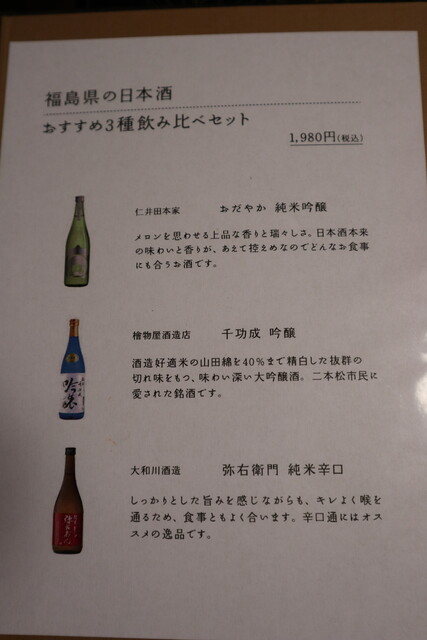 福島県の日本酒
おすすめ3種飲み比べセット
1,980円(税込)
仁井田本家 おだやか 純米吟醸
メロンを思わせる上品な香りと瑞々しさ。日本酒本来
の味わいと香りが、あえて控えめなのでどんなお食事
にも合うお酒です。
檜物屋酒造店 千功成 吟醸
酒造好適米の山田綿を40%まで精白した抜群の
切れ味をもつ、味わい深い大吟醸酒。二本松市民に
愛された銘酒です。
吟醸
大和川酒造 弥右衛門 純米辛口
しっかりとした旨みを感じながらも、キレよく喉を
通るため、食事ともよく合います。辛口通にはオス
スメの逸品です。